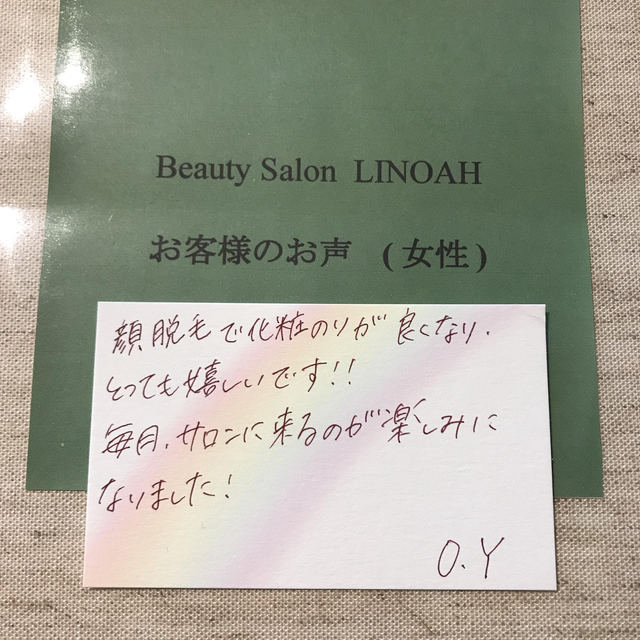 Beauty Salon LINOAH
お客様のお声 (女性)
顔脱毛で化粧のりが良くなり、
とっても嬉しいです!!
毎月、サロンに来るのが楽しみに
なりました!
O.Y